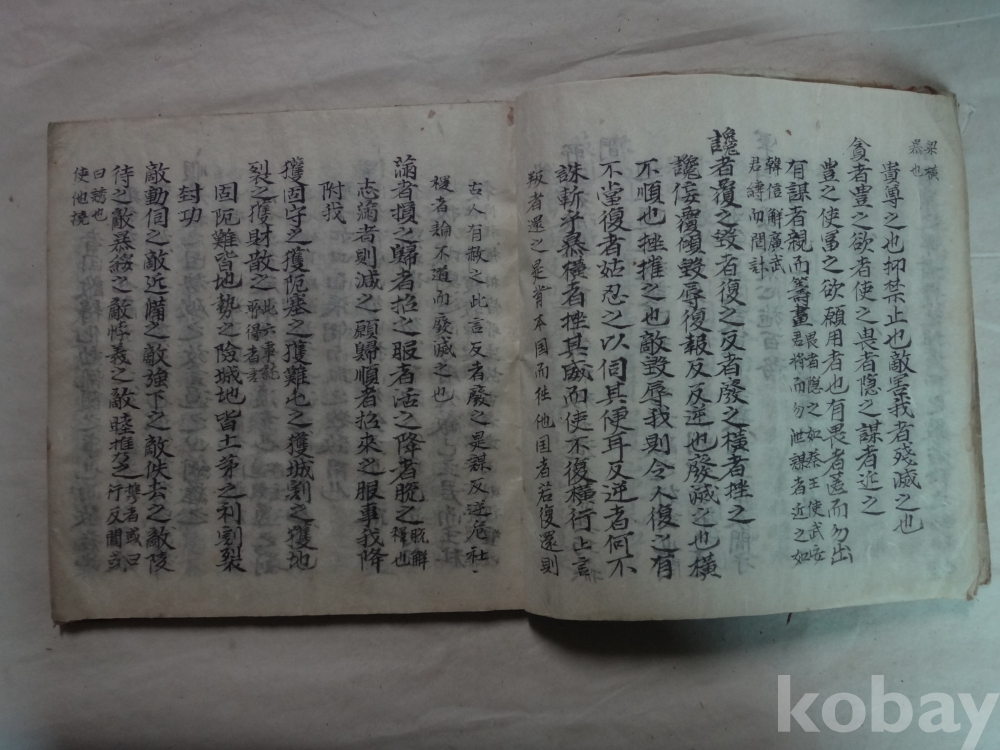 梁橫
暴也
貴尊之也抑禁止也敵暴我者殘滅之也
貪者豊之欲者使之畏者隐之謀者近之
豊之使富之欲願用者也有畏者匿而勿出
有謀者親而籌畫 畏者隐之如秦王使武安
君将而勿泄謀者近之如
韓信解廣武
君縛而問計
讒者覆之毀者復之反者廢之橫者挫之
讒侫覆傾毀辱復報反反逆也廢滅之也橫
不順也挫摧之也敵毀辱我則令人復之有
不當復者姑忍之以伺其便耳反逆者何不
誅斬乎暴橫者挫其威而使不復橫行上言
叛者還之是背本国而徃他国者若復還則
古人有赦之此言反者廢之是謀反逆危社
稷者論不道而廢滅之也
滿者損之歸者招之服者活之降者脫之 脫解
釋也
志滿者則滅之願歸順者招来之服事我降
附找
獲固守之獲阨塞之獲難屯之獲城割之獲地
裂之獲財散之 此六事能
取得者才
固阨難皆地勢之險城地皆土茅之利割裂
封功
敵動伺之敵近備之敵強下之敵佚去之敵陵
待之敵暴綏之敵悖義之敵睦携之 携者或曰
行反間或
曰誘也
使他撓
kobay